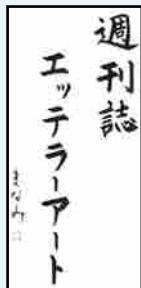 週刊誌
エッテラーアート
まなみ